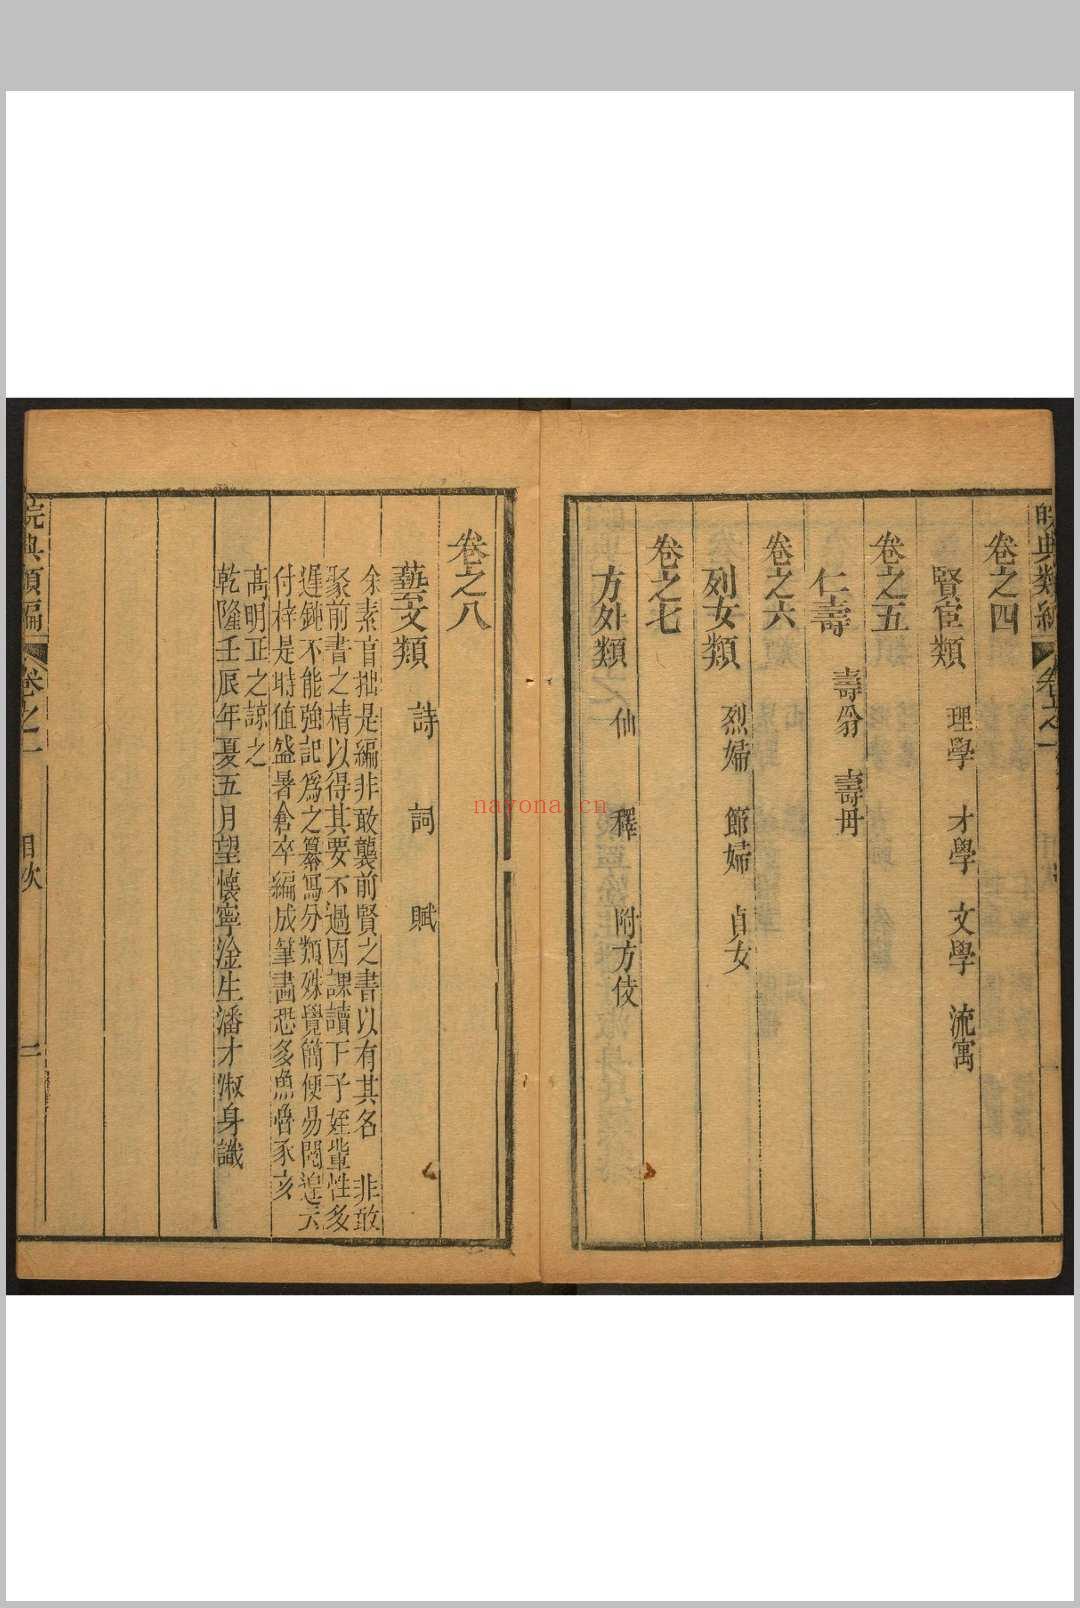 皖典類編 卷之一
卷之四
賢宦類 理學 才學 文學 流寓
卷之五
仁壽 壽翁 壽母
卷之六
列女類 烈婦 節婦 貞女
卷之七
方外類 仙 釋 附方伎
卷之八
藝文類 詩 詞 賦
余素盲拙是編非敢襲前賢之書以有其名 非敢
聚前書之精以得其要不過因課讀下子姪輩性多
遲鈍不能強記爲之纂寫分類殊覺簡便易閱遑云
付梓是時值盛暑倉卒編成筆畫恐多魚魯豕亥
高明正之諒之
乾隆壬辰年夏五月望懷寧淦生潘才淑身識
皖典類編 卷之一 目次 二
nayona.cn